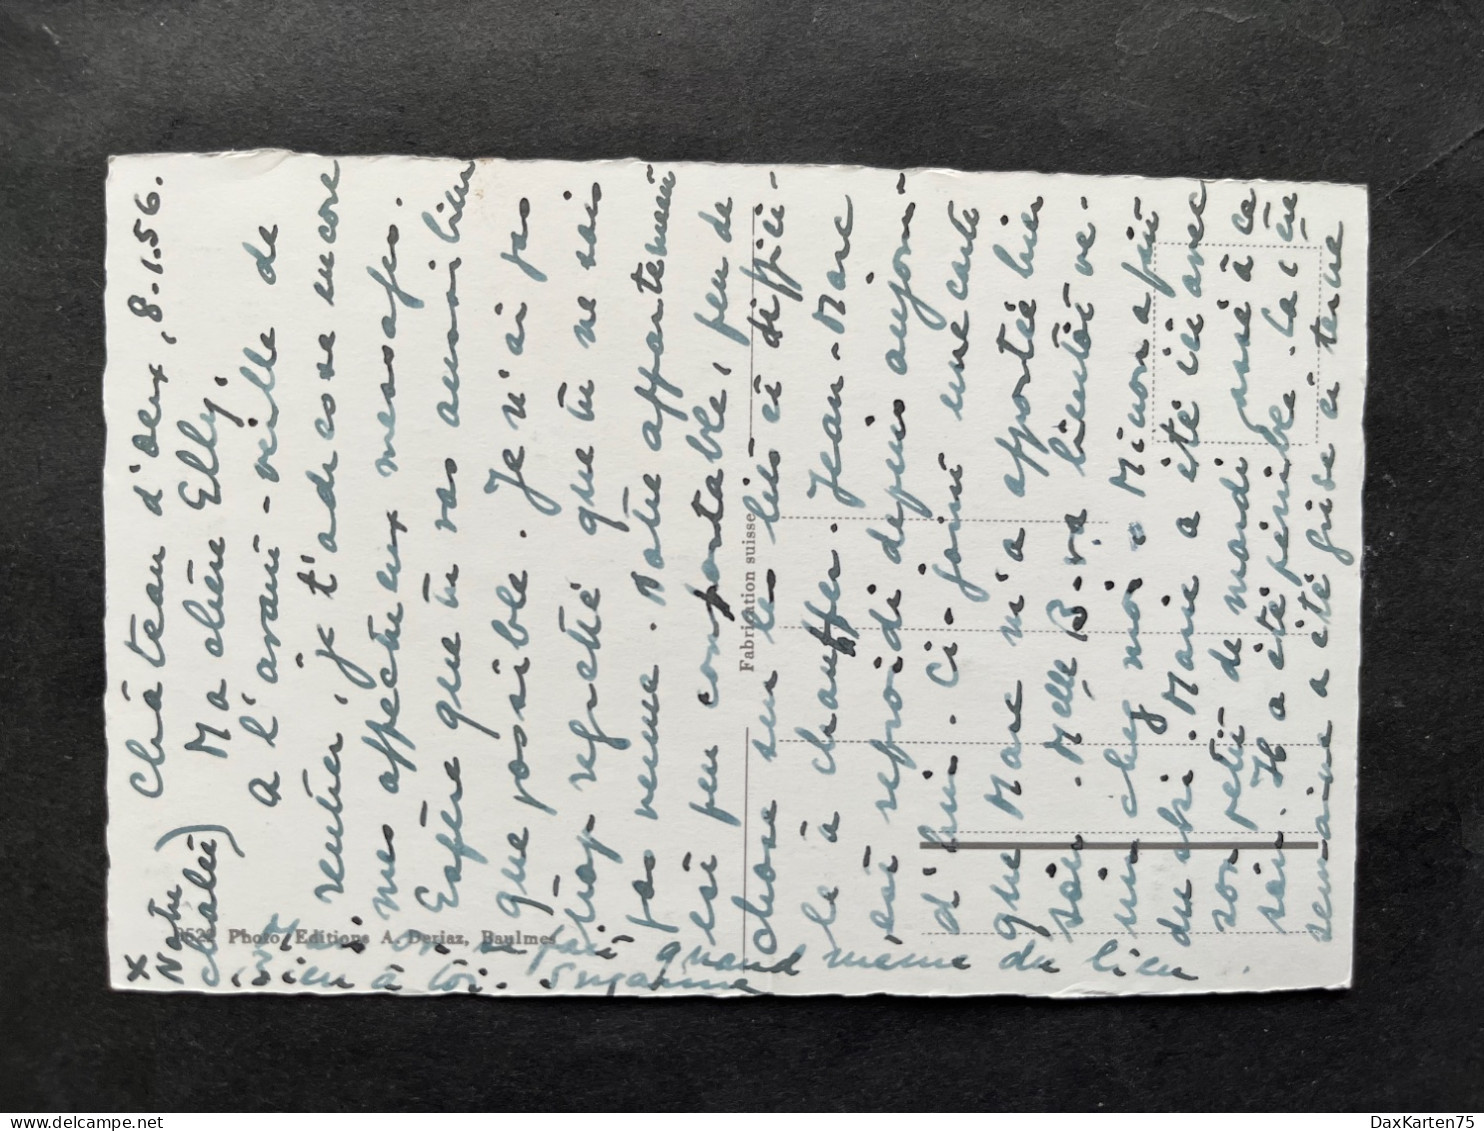 Château d'Oex, 8.1.56.
Ma chère Elly,
A l'avant-veille de
rentrer, je t'adresse encore
mes affectueux messages.
Espère que tu vas aussi bien
que possible. Je n'ai pas
trop regretté que tu ne sois
pas venue. Notre appartement
est peu confortable, peu de
chose sur les lits et diffici-
le à chauffer. Jean-Marc
est refroidi depuis aujour-
d'hui. Ci-joint une carte
que Marc m'a apportée hier
soir. Melle B. va bientôt
chez moi
du ski. Marie a été ici avec
son petit de mardi passé à ce
soir. Il a été pénible. La
semaine a été grise et terne
si on fait quand même du bien.
Bien à toi. Suzanne
x
Notre
chalet)
Photo Editions A. Deriaz, Baulmes
Fabrication suisse
DaxKarten75